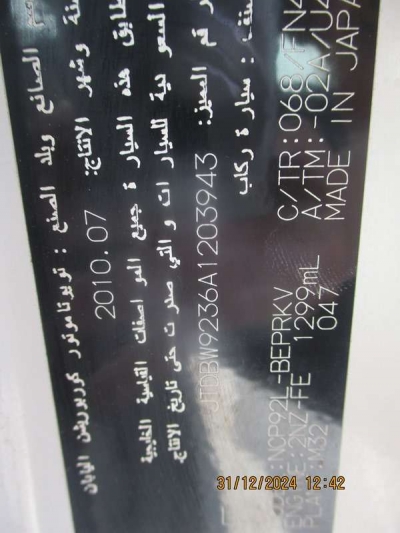 الصانع وبلد الصنع : تويوتا موتور كوربوريشن اليابان
سنة وشهر الانتاج: 2010.07
تطابق هذه السيارة جميع المواصفات القياسية الخليجية
السعودية للسيارات والتي صدرت حتى تاريخ الانتاج.
رقم المميز: JTDBW9236A1203943
: سيارة ركاب
:NCP92L-BEPRKV C/TR:068/FN4
ENGINE:2NZ-FE 1299mL A/TM:-02A/U4
PLANT:M32 047 MADE IN JAPAN
31/12/2024 12:42